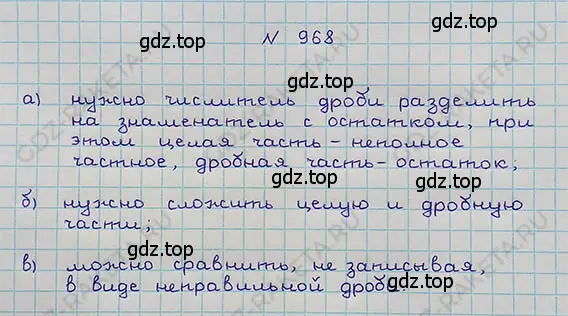 N 968
gdz.top
gdz.top
а) нужно числитель дроби разделить
на знаменатель с остатком, при
этом целая часть - неполное
gdz.top
частное, дробная часть - остаток;
gdz.top
б) нужно сложить целую и дробную
части;
gdz.top
gdz.top
в) можно сравнить, не записывая,
в виде неправильной дроби.
gdz.top